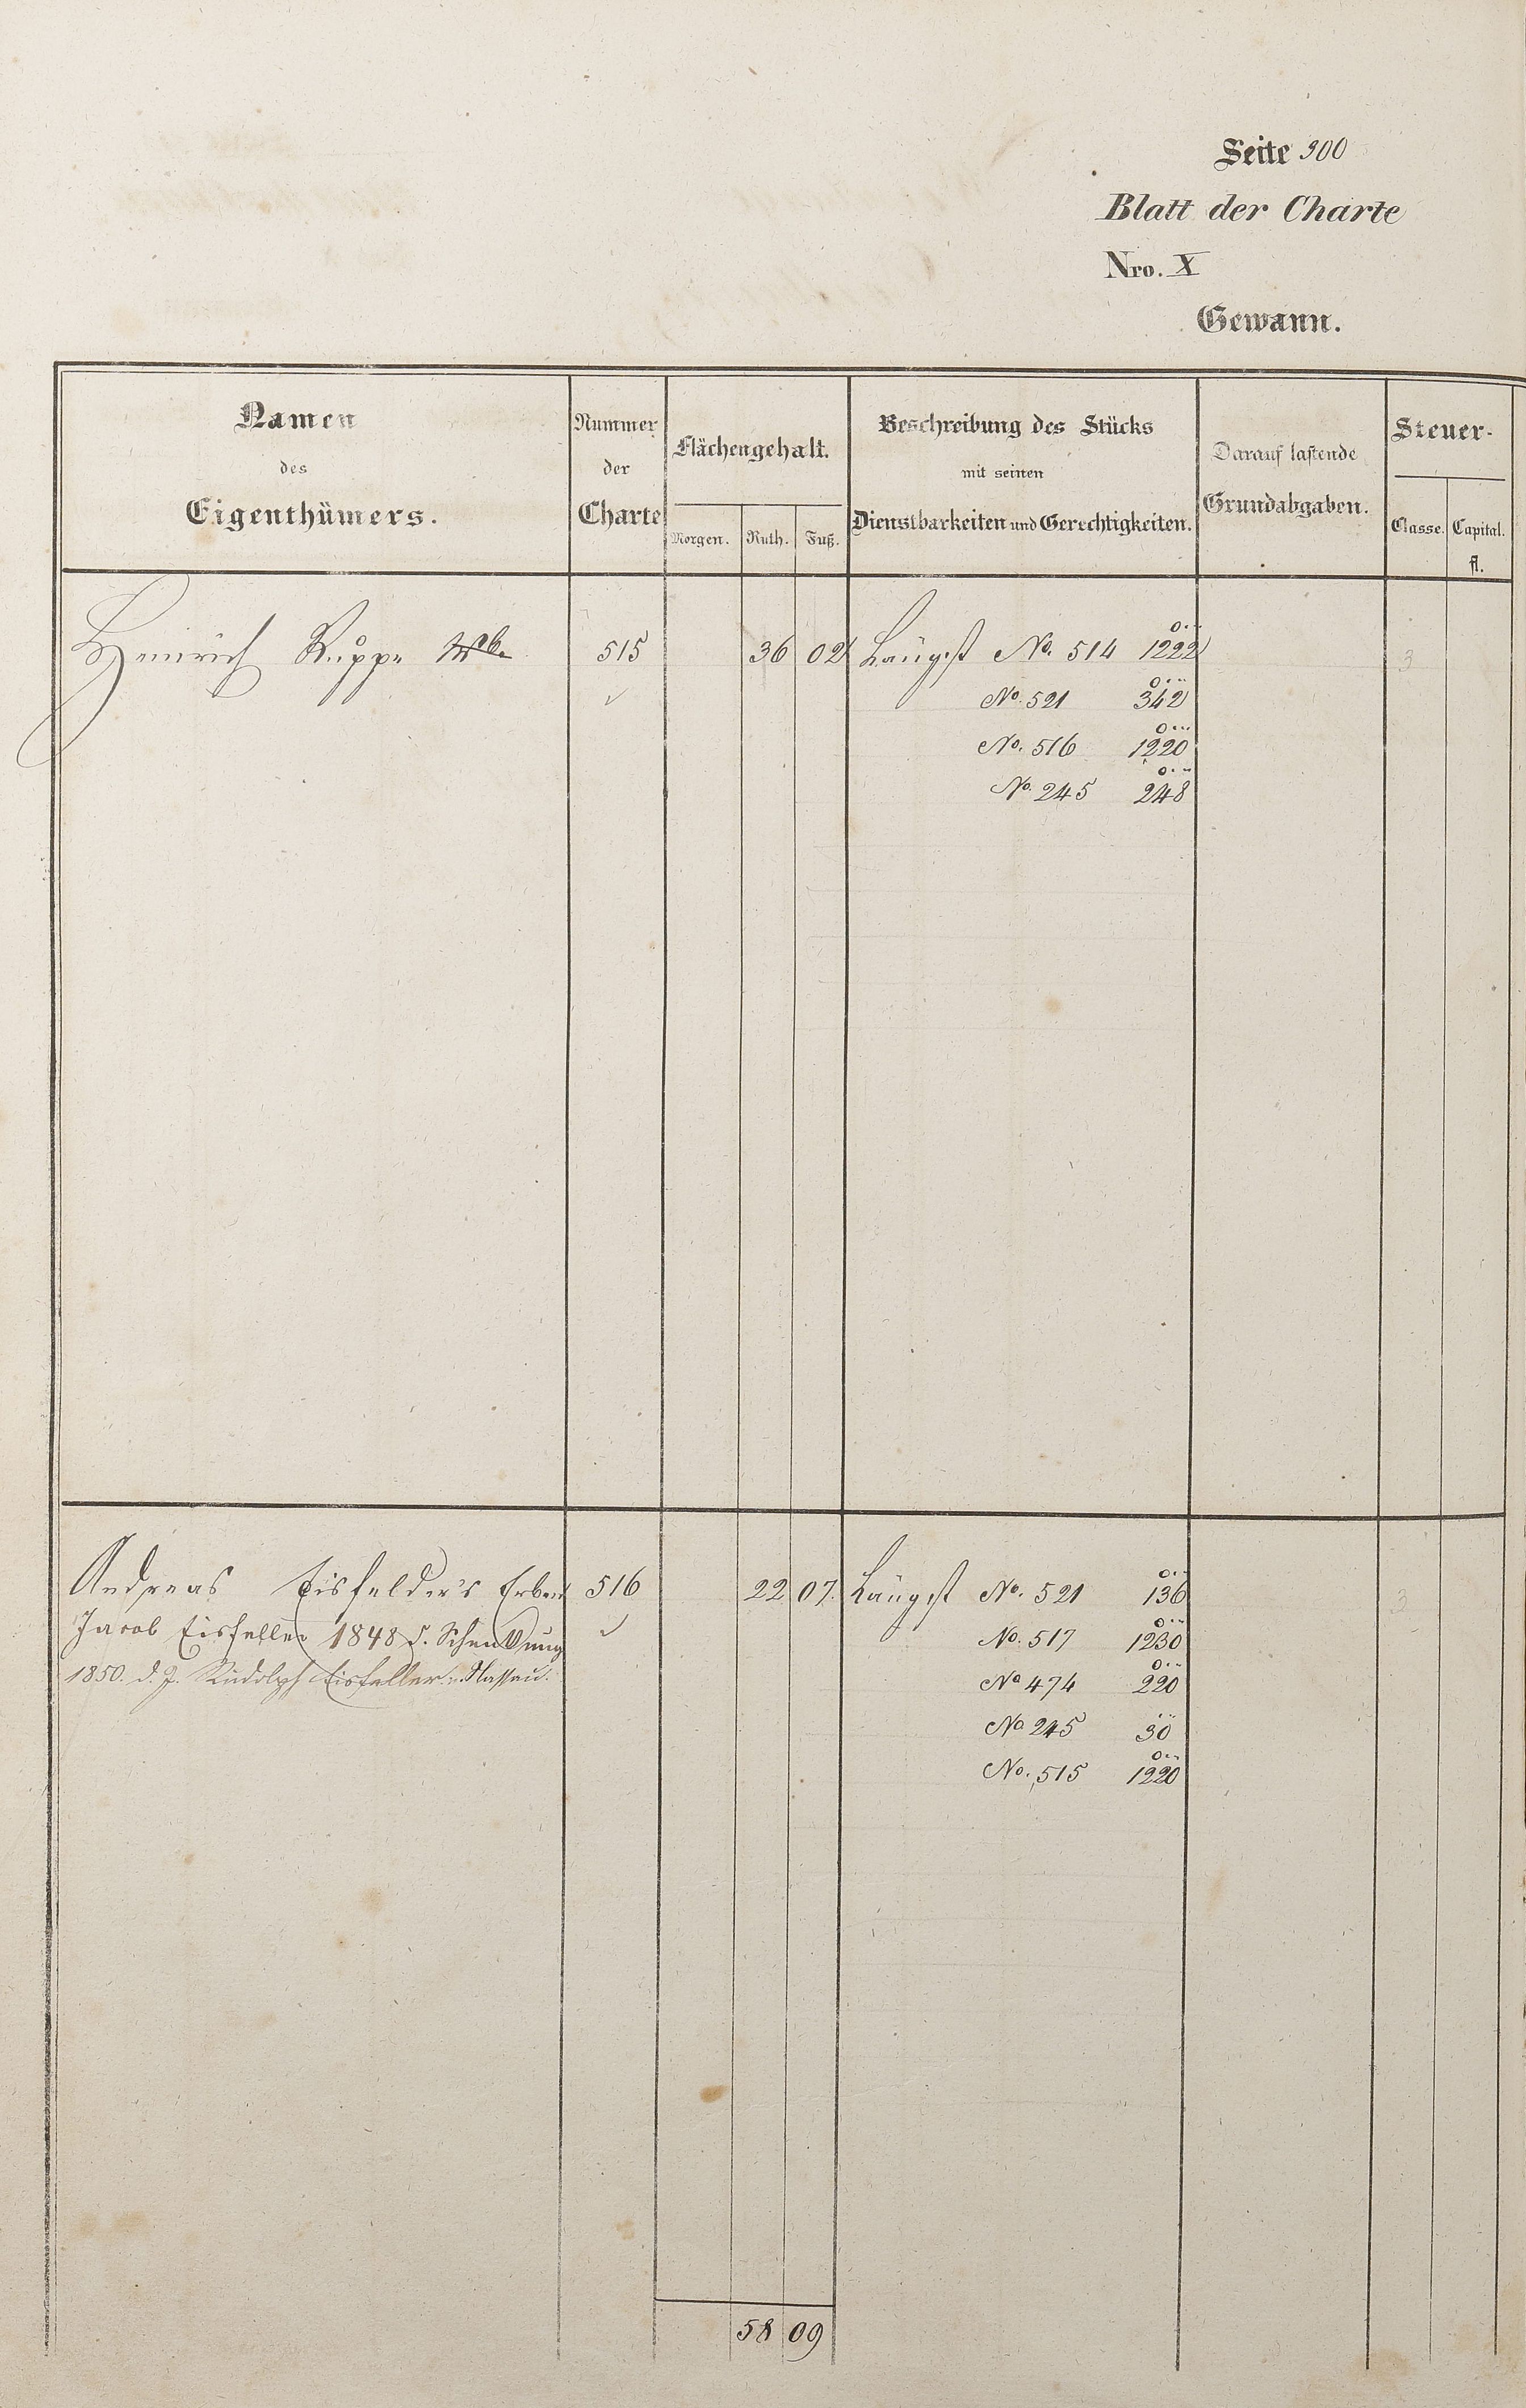 Seite 900
Blatt der Charte
Nro. X
Gewann.
Namen des Eigenthümers.
Nummer der Charte
Flächengehalt.
Morgen. Ruth. Fuß.
Beschreibung des Stücks mit seinen Dienstbarkeiten und Gerechtigkeiten.
Darauf lastende Grundabgaben.
Steuer-
Classe. Capital.
fl.
Heinrich Ruppe Wb. 515 36 02 Längst No. 514 1222 3
No. 521 342
No. 516 1220
No. 245 248
Andreas Eisfelder's Erben 516 22 07. Längst No. 521 136 3
Jacob Eisfeller 1848 d. Schenkung No. 517 1230
1850. d. J. Rudolph Eisfeller v. Nassau. No 474 220
No 245 30
No. 515 1220
58 09